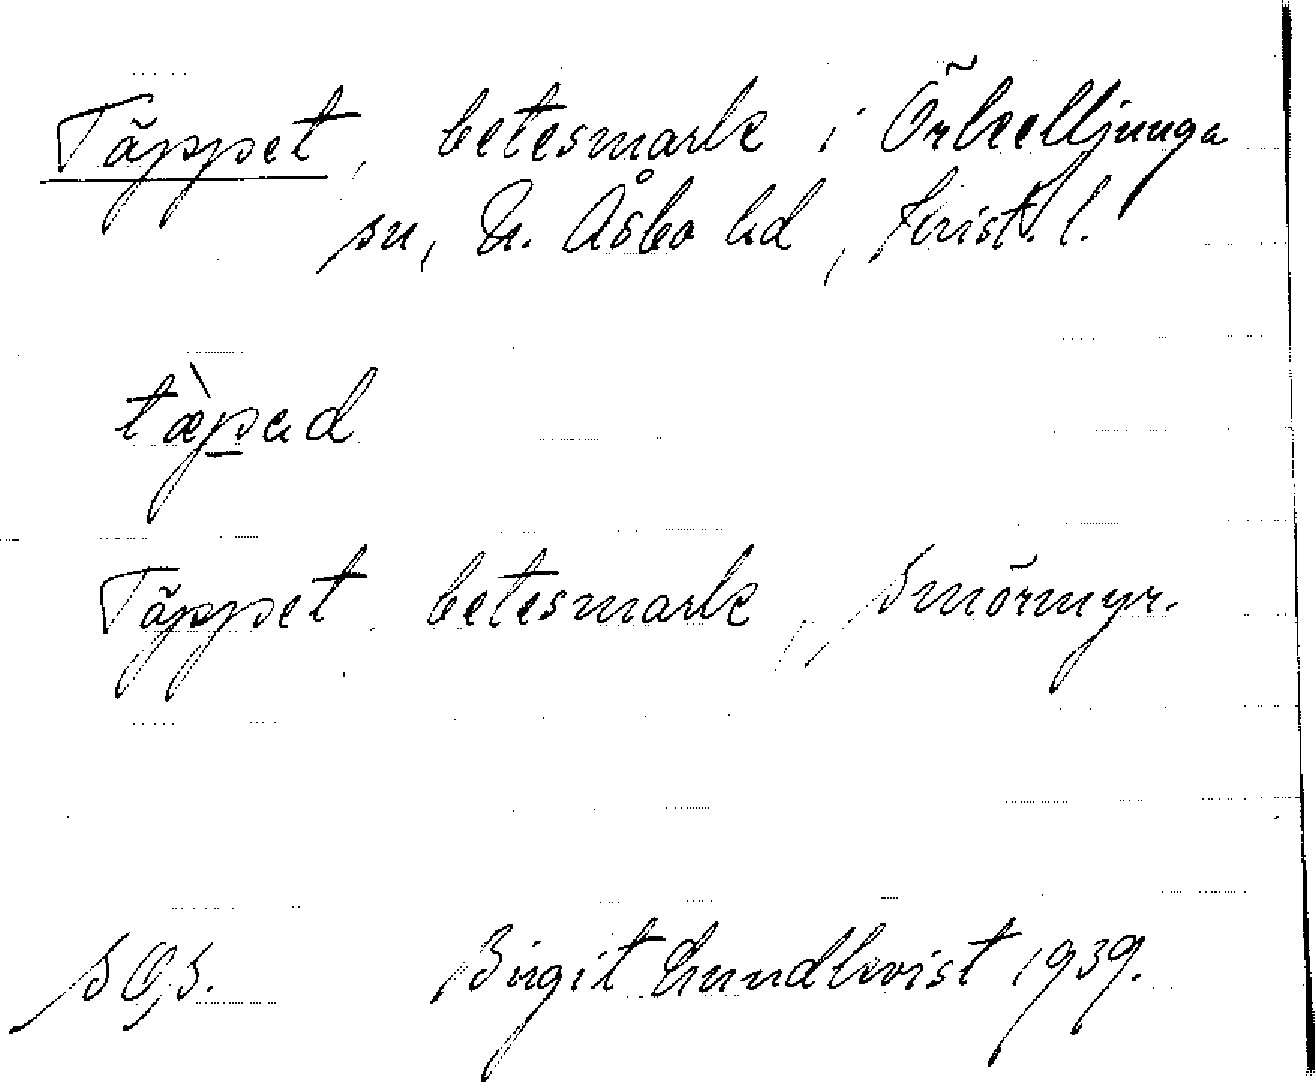 Täppet, betesmark i Örkelljunga
sn, N. Åsbo hd, Krist. l.
tæ̀pad
Täppet, betesmark, Smörmyr.
SOS. Birgit Lundkvist 1939.